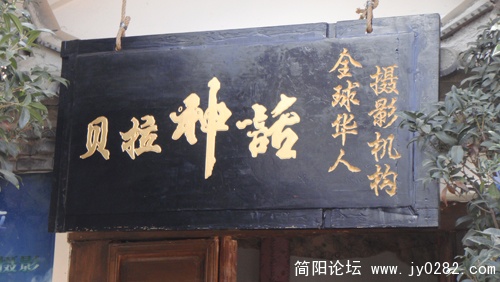 贝拉神話
全球华人
摄影机构
摄影
简阳论坛 www.jy0282.com